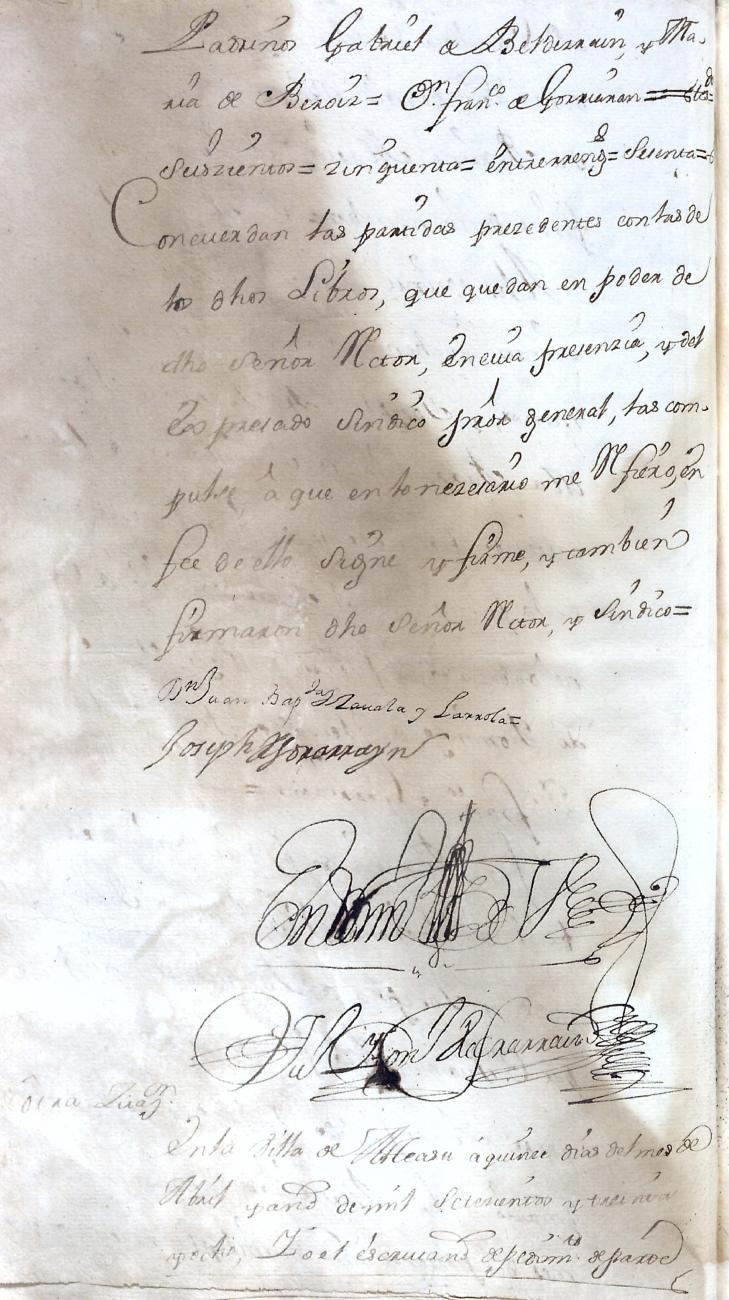 Padrinos Gabriel de Belderrain, y Ma-
ria de Beroiz= Dn. Franco. de Gorriaran=
Seiszientos= zinquenta= entrerrengs= Sesenta=
Concuerdan las partidas prezedentes con las de
los dhos Libros, que quedan en poder de
dho Señor Rector, en cuia presenzia, y del
Expresado Sindico prór general, las com-
pulse, a que en lo nezesario me Refiero, en
fee de ello Signe y firme, y tambien
firmaron dho Señor Rector, y Sindico=
Dn Juan Bapta Zavala y Larrola=
Joseph
En de Verd
otra Zitaon.
En la Villa de a quinze dias del mes de
Abril y año de mil Setezientos y treinta
y ocho, Yo el escrivano de pedimto de parte